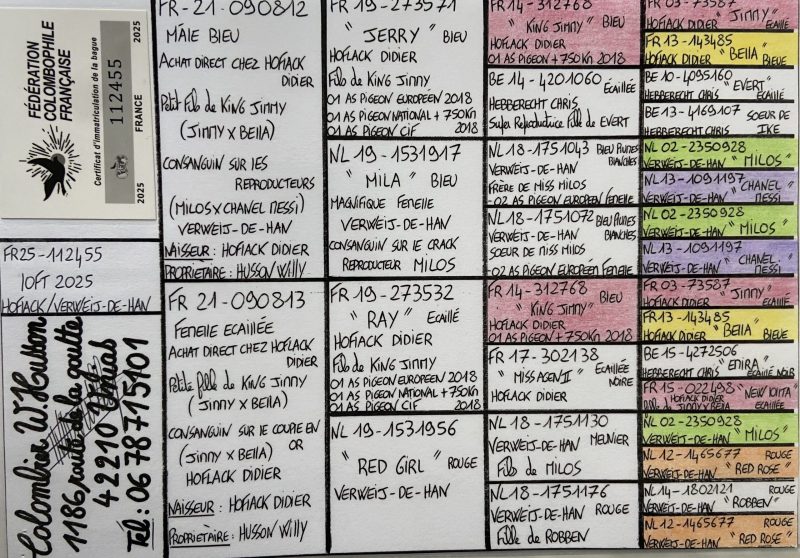 FÉDÉRATION
COLOMBOPHILE
FRANÇAISE
Certificat d'immatriculation de la bague
112455
2025
FRANCE
2025
FR25-112455
LOFT 2025
HOFLACK/VERWEIJ-DE-HAN
Colombier W. Husson
1186, route de la goutte
42210 Unias
Tél: 06 78 71 51 01
FR-21-090812
MÂLE BLEU
ACHAT DIRECT CHEZ HOFLACK
DIDIER
Petit Fils de KING JIMMY
(JIMMY x BELLA)
CONSANGUIN SUR LES
REPRODUCTEURS
(MILOS x CHANEL MESSI)
VERWEIJ-DE-HAN
NAISSEUR: HOFLACK DIDIER
PROPRIÉTAIRE: HUSSON WILLY
FR 21-090813
FEMELLE ECAILLÉE
ACHAT DIRECT CHEZ HOFLACK
DIDIER
Petite fille de KING JIMMY
(JIMMY x BELLA)
CONSANGUIN SUR LE COUPLE EN
OR
(JIMMY x BELLA)
HOFLACK DIDIER
NAISSEUR: HOFLACK DIDIER
PROPRIÉTAIRE: HUSSON WILLY
FR 19-273571
"JERRY" BLEU
HOFLACK DIDIER
Fils de KING JIMMY
01 AS PIGEON EUROPÉEN 2018
01 AS PIGEON NATIONAL + 750KM
01 AS PIGEON CIF 2018
NL 19-1531917
"MILA" BLEU
MAGNIFIQUE FEMELLE
VERWEIJ-DE-HAN
CONSANGUIN SUR LE CRACK
REPRODUCTEUR MILOS
FR 19-273532
"RAY" ECAILLÉ
HOFLACK DIDIER
Fils de KING JIMMY
01 AS PIGEON EUROPEEN 2018
01 AS PIGEON NATIONAL + 750KM
01 AS PIGEON CIF 2018
NL 19-1531956
"RED GIRL" ROUGE
VERWEIJ-DE-HAN
FR 14-312768
"KING JIMMY" BLEU
HOFLACK DIDIER
01 AS PIGEON + 750Km 2018
BE 14-4201060 ÉCAILLÉE
HEBBERECHT CHRIS
Super Reproductrice Fille de EVERT
NL 18-1751043 BLEU PLUMES
BLANCHES
VERWEIJ-DE-HAN
FRÈRE DE MISS MILOS
02 AS PIGEON EUROPÉEN FEMELLE
NL 18-1751072 BLEU PLUMES
BLANCHES
VERWEIJ-DE-HAN
SOEUR DE MISS MILOS
02 AS PIGEON EUROPÉEN FEMELLE
FR 14-312768
"KING JIMMY" BLEU
HOFLACK DIDIER
01 AS PIGEON + 750Km 2018
FR 17-302138
"MISS AGEN II" ECAILLÉE
NOIRE
HOFLACK DIDIER
NL 18-1751130
VERWEIJ-DE-HAN MEUNIER
Fils de MILOS
NL 18-1751176
VERWEIJ-DE-HAN ROUGE
Fille de ROBBEN
FR 03-73587
"JIMMY"
HOFLACK DIDIER ECAILLÉ
FR 13-143485
HOFLACK DIDIER "BELLA" BLEUE
BE 10-4095160
"EVERT"
HEBBERECHT CHRIS ECAILLÉ
BE 13-4169107 SOEUR DE
HEBBERECHT CHRIS IKE
NL 02-2350928
VERWEIJ-DE-HAN "MILOS"
NL 13-1091197
VERWEIJ-DE-HAN "CHANEL
MESSI
NL 02-2350928
VERWEIJ-DE-HAN "MILOS"
NL 13-1091197
VERWEIJ-DE-HAN "CHANEL
MESSI
FR 03-73587
"JIMMY"
HOFLACK DIDIER ECAILLÉ
FR 13-143485
HOFLACK DIDIER "BELLA" BLEUE
BE 15-4272506
"EMIRA"
HEBBERECHT CHRIS ECAILLÉ NOIR
FR 15-022498 "NEW LOLITA"
HOFLACK DIDIER
Fille de JIMMY x BELLA ECAILLÉE
NL 02-2350928
VERWEIJ-DE-HAN "MILOS"
NL 12-1465677 ROUGE
VERWEIJ-DE-HAN "RED ROSE"
NL 14-1802121 ROUGE
VERWEIJ-DE-HAN "ROBBEN"
NL 12-1465677 ROUGE
VERWEIJ-DE-HAN "RED ROSE"